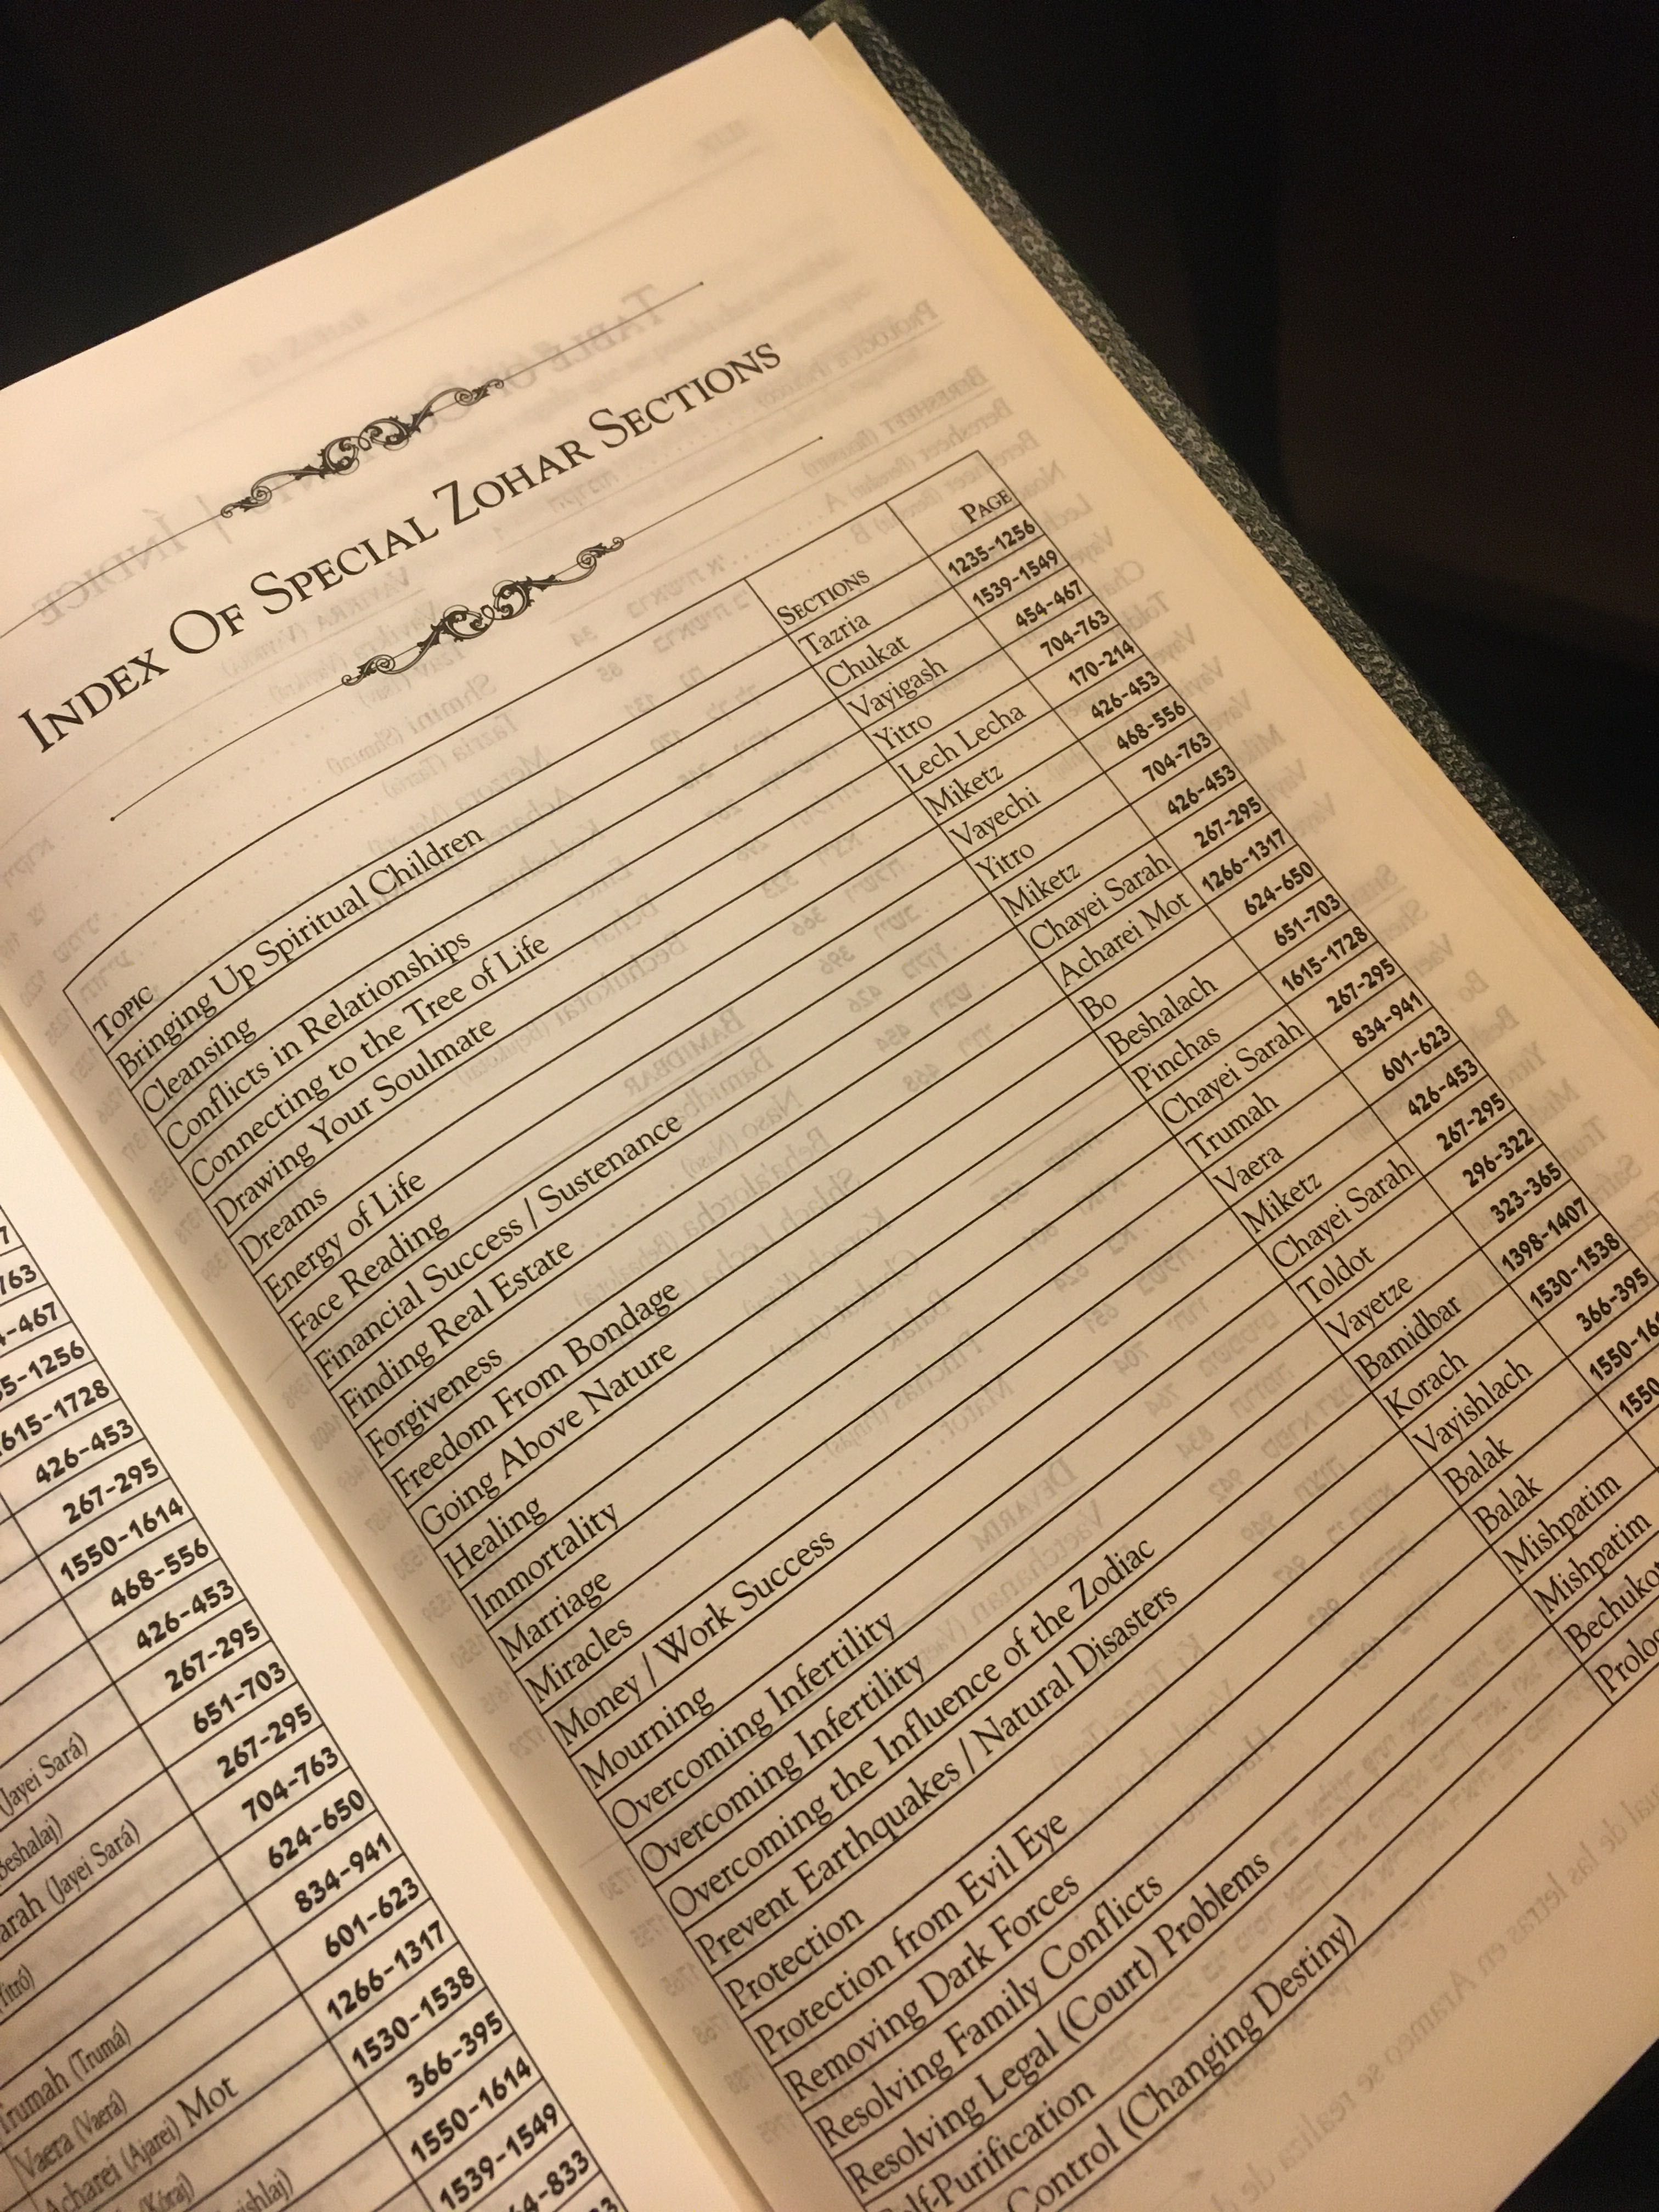 763
4-467
1615-1728
426-453
267-295
1550-1614
468-556
426-453
(Jayei Sará) 267-295
Beshalaj) 651-703
arah (Jayei Sará) 267-295
704-763
624-650
Trumah (Trumá) 834-941
Vaera (Vaerá) 601-623
Acharei (Ajarei) Mot 1266-1317
(Kóraj) 1530-1538
366-395
1550-1614
1539-1549
INDEX OF SPECIAL ZOHAR SECTIONS
TOPIC SECTIONS PAGE
Bringing Up Spiritual Children Tazria 1235-1256
Cleansing Chukat 1539-1549
Conflicts in Relationships Vayigash 454-467
Connecting to the Tree of Life Yitro 704-763
Drawing Your Soulmate Lech Lecha 170-214
Dreams Miketz 426-453
Energy of Life Vayechi 468-556
Face Reading Yitro 704-763
Financial Success / Sustenance Miketz 426-453
Finding Real Estate Chayei Sarah 267-295
Forgiveness Acharei Mot 1266-1317
Freedom From Bondage Bo 624-650
Going Above Nature Beshalach 651-703
Healing Pinchas 1615-1728
Immortality Chayei Sarah 267-295
Marriage Trumah 834-941
Miracles Vaera 601-623
Money / Work Success Miketz 426-453
Mourning Chayei Sarah 267-295
Overcoming Infertility Toldot 296-322
Overcoming Infertility Vayetze 323-365
Overcoming the Influence of the Zodiac Bamidbar 1398-1407
Prevent Earthquakes / Natural Disasters Korach 1530-1538
Protection Vayishlach 366-395
Protection from Evil Eye Balak 1550-161
Removing Dark Forces Balak 1550
Resolving Family Conflicts Mishpatim
Resolving Legal (Court) Problems Mishpatim
lf-Purification Bechukot
Control (Changing Destiny) Prolo